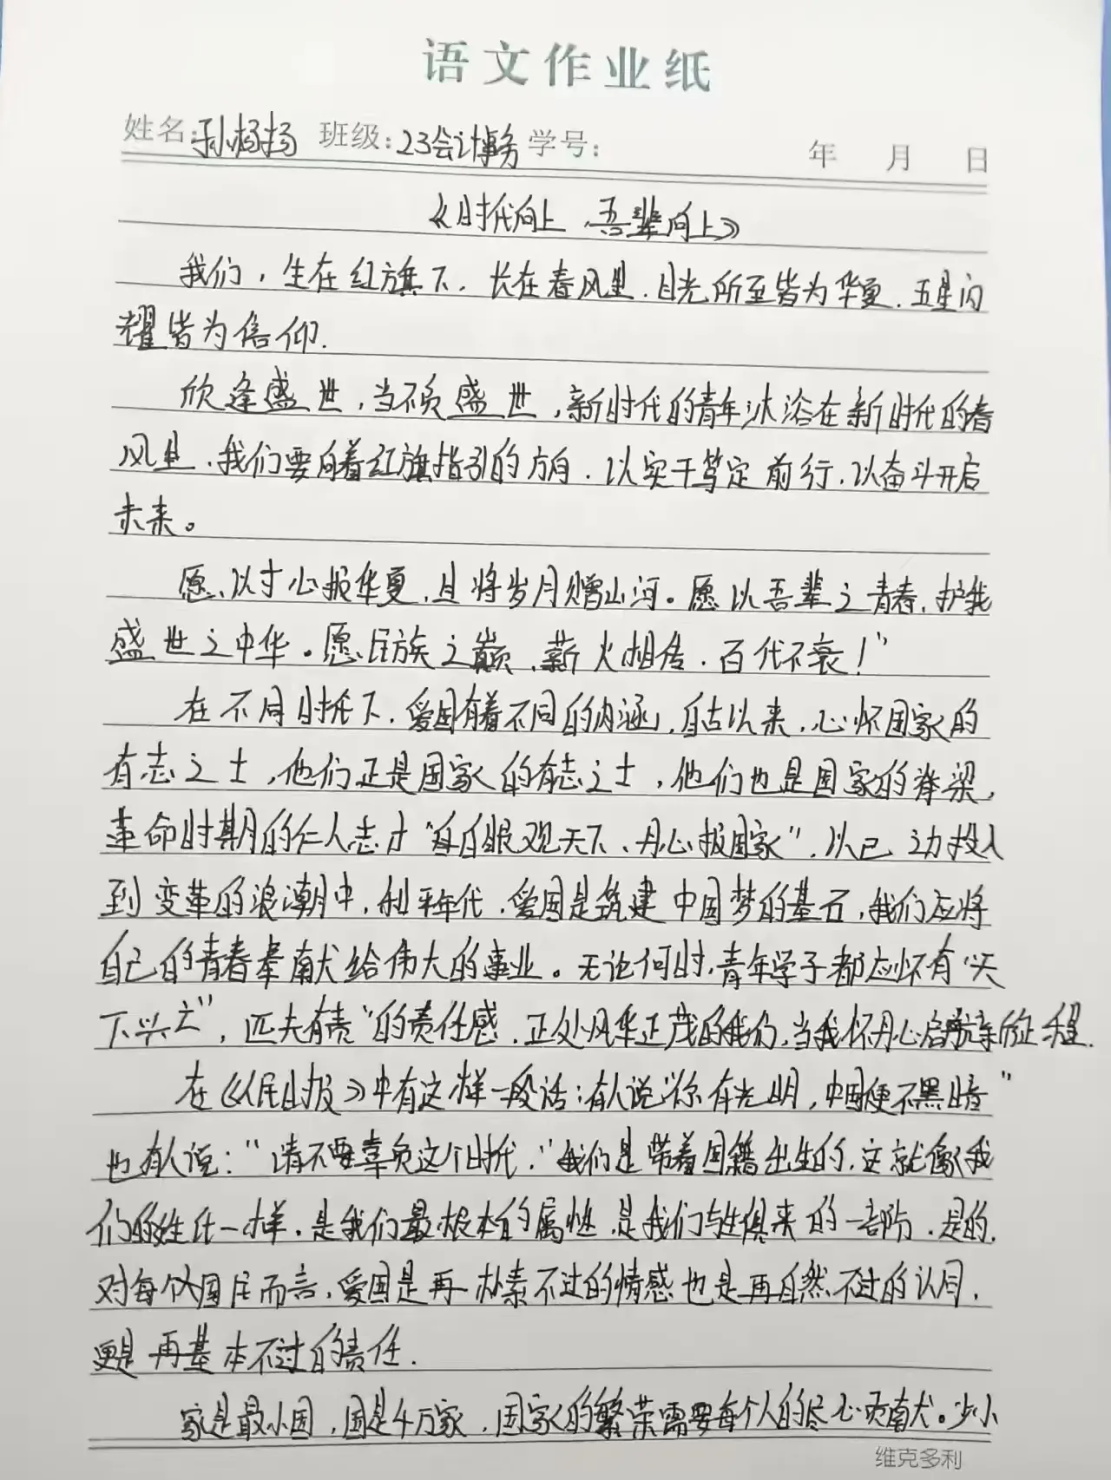 语文作业纸
姓名:孙杨扬 班级:23会计事务 学号: 年 月 日
《时代向上 吾辈向上》
我们,生在红旗下,长在春风里,目光所至皆为华夏,五星闪
耀皆为信仰.
欣逢盛世,当不负盛世,新时代的青年沐浴在新时代的春
风里,我们要向着红旗指引的方向,以实干笃定前行,以奋斗开启
未来。
愿,以寸心报华夏,且将岁月赠山河。愿以吾辈之青春,护我
盛世之中华。愿民族之巅,薪火相传,百代不衰!"
在不同时代下,爱国有着不同的内涵,自古以来,心怀国家的
有志之士,他们正是国家的有志之士,他们也是国家的脊梁,
革命时期的仁人志才"每自眼观天下、丹心报国家",以己之力投入
到变革的浪潮中,和平年代,爱国是筑建中国梦的基石,我们应将
自己的青春奉献给伟大的事业。无论何时,青年学子都应怀有"天
下兴亡",匹夫有责"的责任感,正处风华正茂的我们,当我怀丹心启航新征程.
在《人民日报》中有这样一段话:有人说"你有光明,中国便不黑暗"
也有人说:"请不要辜负这个时代,"我们是带着国籍出生的,这就像我
们的姓氏一样,是我们最根本的属性,是我们与生俱来的一部分,是的,
对每个国民而言,爱国是再朴素不过的情感也是再自然不过的认同,
更是再基本不过的责任.
家是最小国,国是千万家,国家的繁荣需要每个人的尽心贡献。少小
维克多利